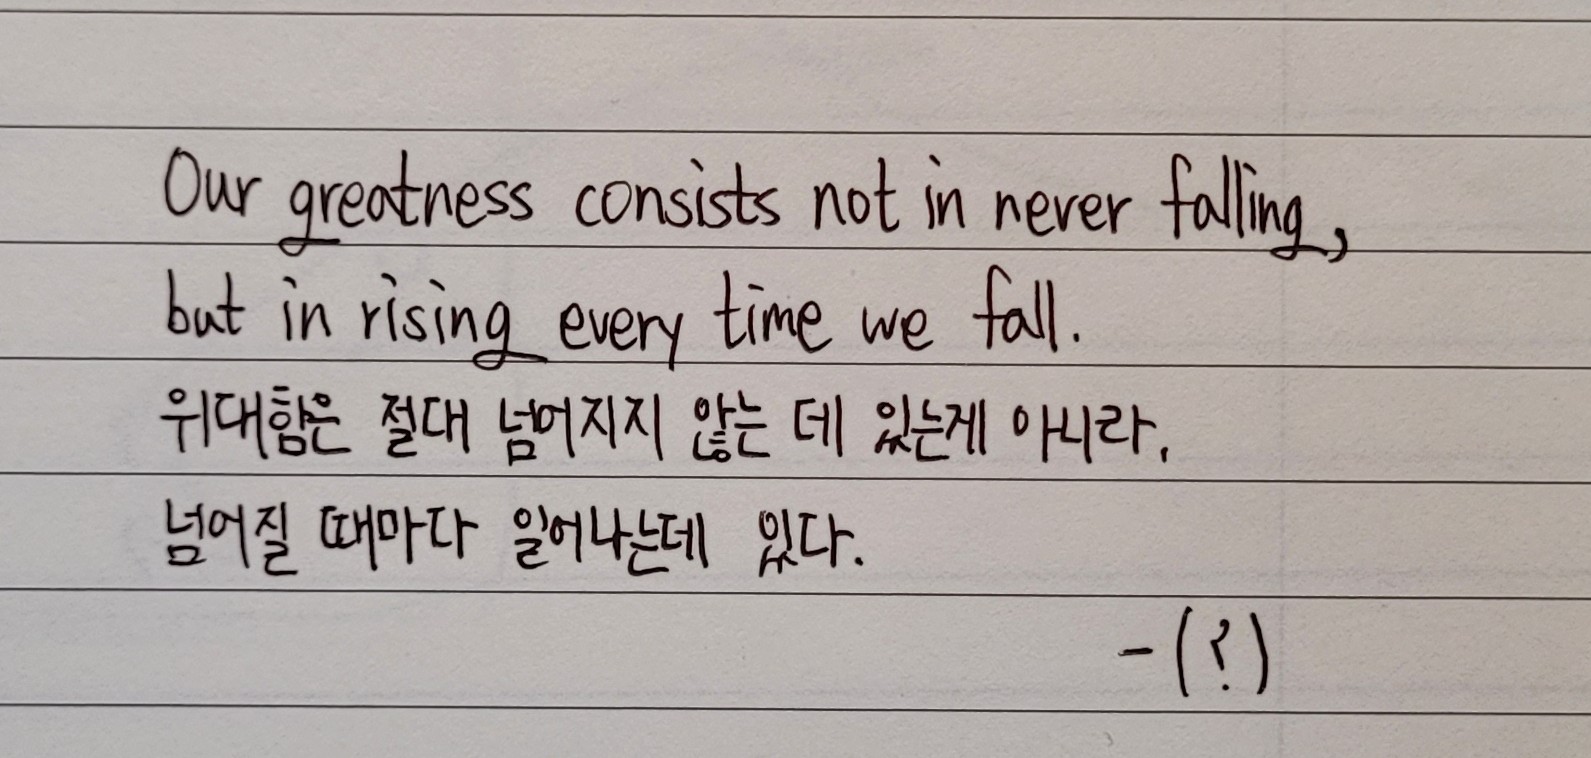 Our greatness consists not in never falling,
but in rising every time we fall.
위대함은 절대 넘어지지 않는 데 있는게 아니라,
넘어질 때마다 일어나는데 있다.
- (?)